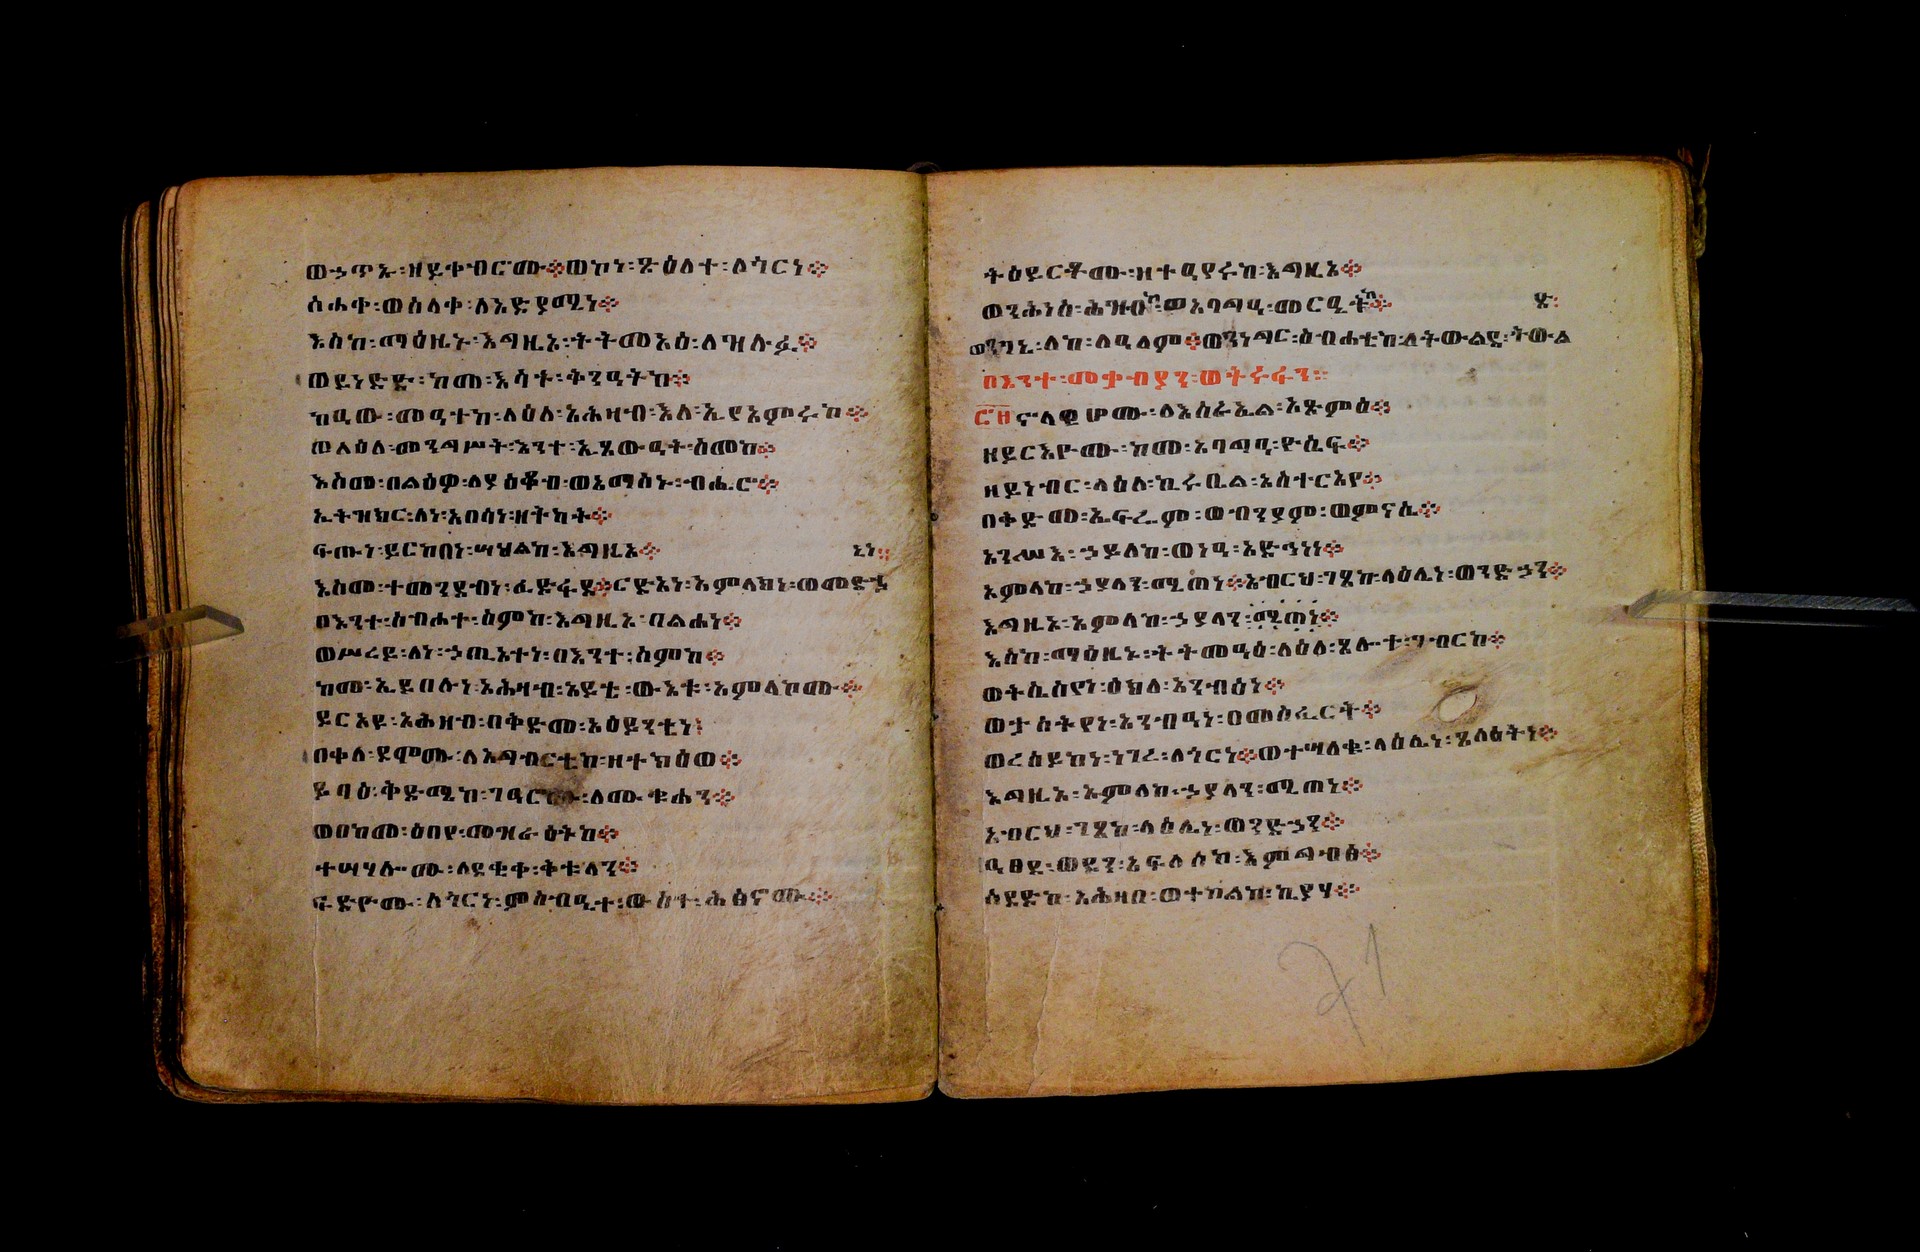 ወኃጥኡ፡ዘይቀብሮሙ፨ወኮነ፡ጽዕለተ፡ለጎርነ፨
ስሐቀ፡ወስላቀ፡ለአድያሚነ፨
እስከ፡ማዕዜኑ፡እግዚኦ፡ትትመአዕ፡ለዝሉፉ፨
ወይነድድ፡ከመ፡እሳት፡ቅንዓትከ፨
ከዓው፡መዓተከ፡ላዕለ፡አሕዛብ፡እለ፡ኢየአምሩከ፨
ወላዕለ፡መንግሥት፡እንተ፡ኢጸውዓት፡ስመከ፨
እስመ፡በልዕዎ፡ለያዕቆብ፡ወአማሰኑ፡ብሔሮ፨
ኢትዝክር፡ለነ፡አበሳነ፡ዘትካት፨
ፍጡነ፡ይርከበነ፡ሣህልከ፡እግዚኦ፨
እስመ፡ተመንደብነ፡ፈድፋደ፨ርድአነ፡አምላክነ፡ወመድኂ
ነነ፨
በእንተ፡ስብሐተ፡ስምከ፡እግዚኦ፡በልሐነ፨
ወሥረይ፡ለነ፡ኃጢአተነ፡በእንተ፡ስምከ፨
ከመ፡ኢይበሉነ፡አሕዛብ፡አይቴ፡ውእቱ፡አምላኮሙ፨
ይርአዩ፡አሕዛብ፡በቅድመ፡አዕይንቲነ፤
በቀለ፡ደሞሙ፡ለአግብርቲከ፡ዘተክዕወ፨
ይባዕ፡ቅድሜከ፡ገዓሮሙ፡ለሙቁሐን፨
ወበከመ፡ዕበየ፡መዝራዕትከ፨
ተሣሃሎሙ፡ለደቂቀ፡ቅቱላን፨
ፍድዮሙ፡ለጎርነ፡ምስብዒተ፡ውስተ፡ሕፅኖሙ፨
ትዕይርቶሙ፡ዘተዓየሩከ፡እግዚኦ፨
ወንሕነሰ፡ሕዝብከ፡ወአባግዓ፡መርዔትከ፨
ንገኒ፡ለከ፡ለዓለም፨ወንነግር፡ስብሐቲከ፡ለትውልደ፡ትውል
ድ፡
በእንተ፡መቃብያን፡ወትሩፋን፨
ኖላዊሆሙ፡ለእስራኤል፡አጽምዕ፨
ዘይርእዮሙ፡ከመ፡አባግዓ፡ዮሴፍ፨
ዘይነብር፡ላዕለ፡ኪሩቤል፡አስተርአየ፨
በቀድመ፡ኤፍሬም፡ወብንያም፡ወምናሴ፨
አንሥእ፡ኃይለከ፡ወነዓ፡አድኅነነ፨
አምላከ፡ኃያላን፡ሚጠነ፨አብርህ፡ገጸከ፡ላዕሌነ፡ወንድኃን፨
እግዚኦ፡አምላከ፡ኃያላን፡ሚጠነ፨
እስከ፡ማዕዜኑ፡ትትመዓዕ፡ላዕለ፡ጸሎተ፡ገብርከ፨
ወትሴስየነ፡ዕክለ፡አንብዕነ፨
ወታሰትየነ፡አንብዓነ፡በመስፈርት፨
ወረሰይከነ፡ነገረ፡ለጎርነ፨ወተሣለቁ፡ላዕሌነ፡ጸላእትነ፨
እግዚኦ፡አምላከ፡ኃያላን፡ሚጠነ፨
አብርህ፡ገጸከ፡ላዕሌነ፡ወንድኃን፨
ዓፀደ፡ወይን፡አፍለስከ፡እምግብፅ፨
ሰደድከ፡አሕዛበ፡ወተከልከ፡ኪያሃ፨
71